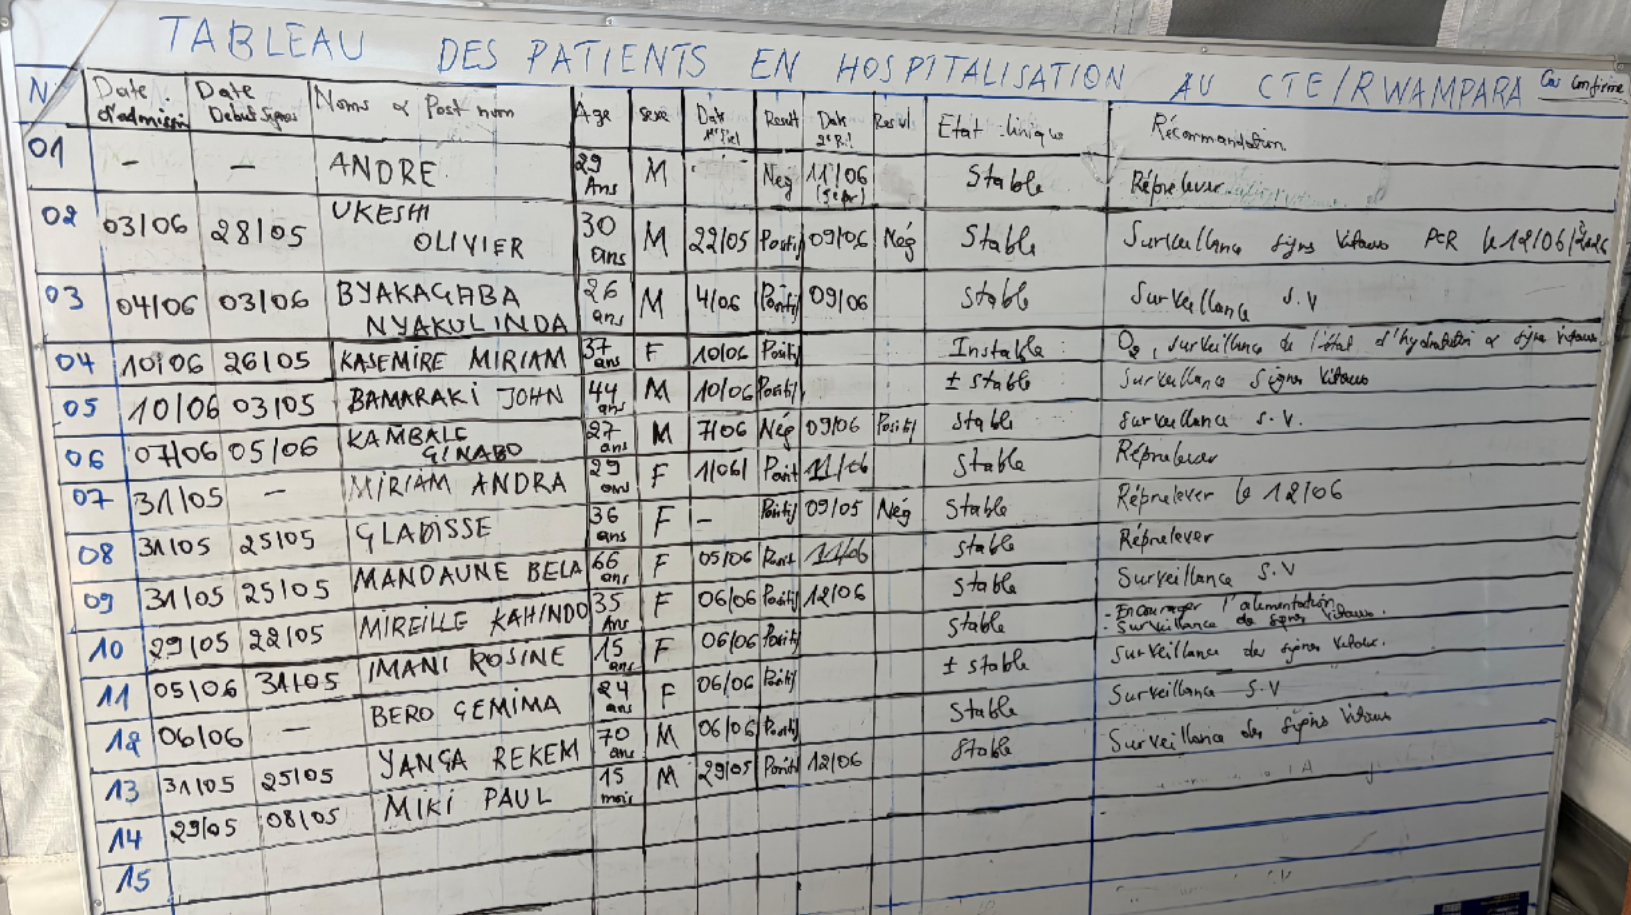 TABLEAU DES PATIENTS EN HOSPITALISATION AU CTE/RWAMPARA Cas confirme
N° Date d'admission Date Debut signes Noms & Post nom Age sexe Date 1er Result Date 2e Resul Etat clinique Récommandation
01 - - ANDRE 29 Ans M Nég 11/06 Stable Réprelever
02 03/06 28/05 UKESHI OLIVIER 30 ans M 22/05 Positif 09/06 Nég Stable Surveillance signes vitaux PCR le 12/06/2026
03 04/06 03/06 BYAKAGABA NYAKULINDA 26 ans M 4/06 Positif 09/06 Stable Surveillance S.V
04 10/06 26/05 KASEMIRE MIRIAM 37 ans F 10/06 Positif Instable O2, surveillance de l'état d'hydratation & signe vitaux
05 10/06 03/05 BAMARAKI JOHN 44 ans M 10/06 Positif ± stable Surveillance signes vitaux
06 07/06 05/06 KAMBALE GINABO 27 ans M 7/06 Nég 09/06 Positif stable surveillance S.V.
07 31/05 - MIRIAM ANDRA 29 ans F 1/06 Posit 11/06 Stable Réprelever
08 31/05 25/05 GLADISSE 36 ans F - Positif 09/05 Nég Stable Réprelever le 12/06
09 31/05 25/05 MANDAUNE BELA 66 ans F 05/06 Posit 11/06 stable Réprelever
10 29/05 22/05 MIREILLE KAHINDO 35 Ans F 06/06 Positif 12/06 Stable Surveillance S.V
11 05/06 31/05 IMANI ROSINE 15 ans F 06/06 Positif stable - Encourager l'alimentation
- Surveillance de signes vitaux.
12 06/06 - BERO GEMIMA 24 ans F 06/06 Positif ± stable Surveillance des signes vitaux.
13 31/05 25/05 YANGA REKEM 70 ans M 06/06 Positif Stable Surveillance S.V
14 29/05 08/05 MIKI PAUL 15 mois M 29/05 Positif 12/06 Stable Surveillance des signes vitaux
15